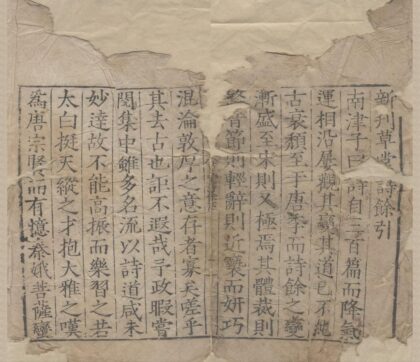 新刊草堂詩餘引
南津子曰詩自三百篇而降氣
運相沿屢觀其其道已不純
古衰頹至于唐季而詩餘之變
漸盛至宋則又極焉其體裁則
繁音節則輕辭則近褻而妍巧
混淪敦厚之意存者寡矣嗟乎
其去古也詎不遐哉予政暇嘗
閱集中雖多名流以詩道咸未
妙達故不能高振而樂習之若
太白挺天縱之才抱大雅之嘆
為唐宗而有憶秦娥菩薩蠻